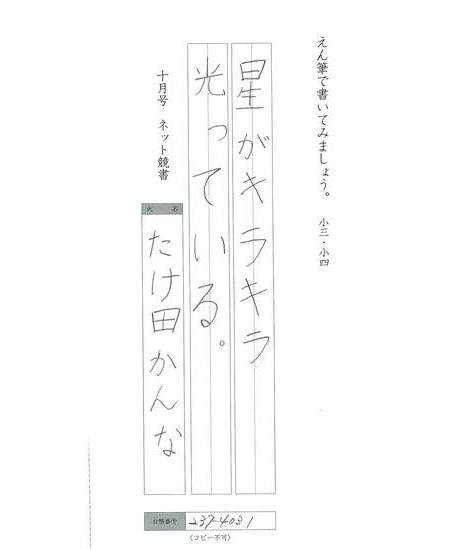 えん筆で書いてみましょう。 小三・小四
星がキラキラ
光っている。
十月号 ネット競書
氏名
たけ田かんな
台帳番号 237-4031
(コピー不可)